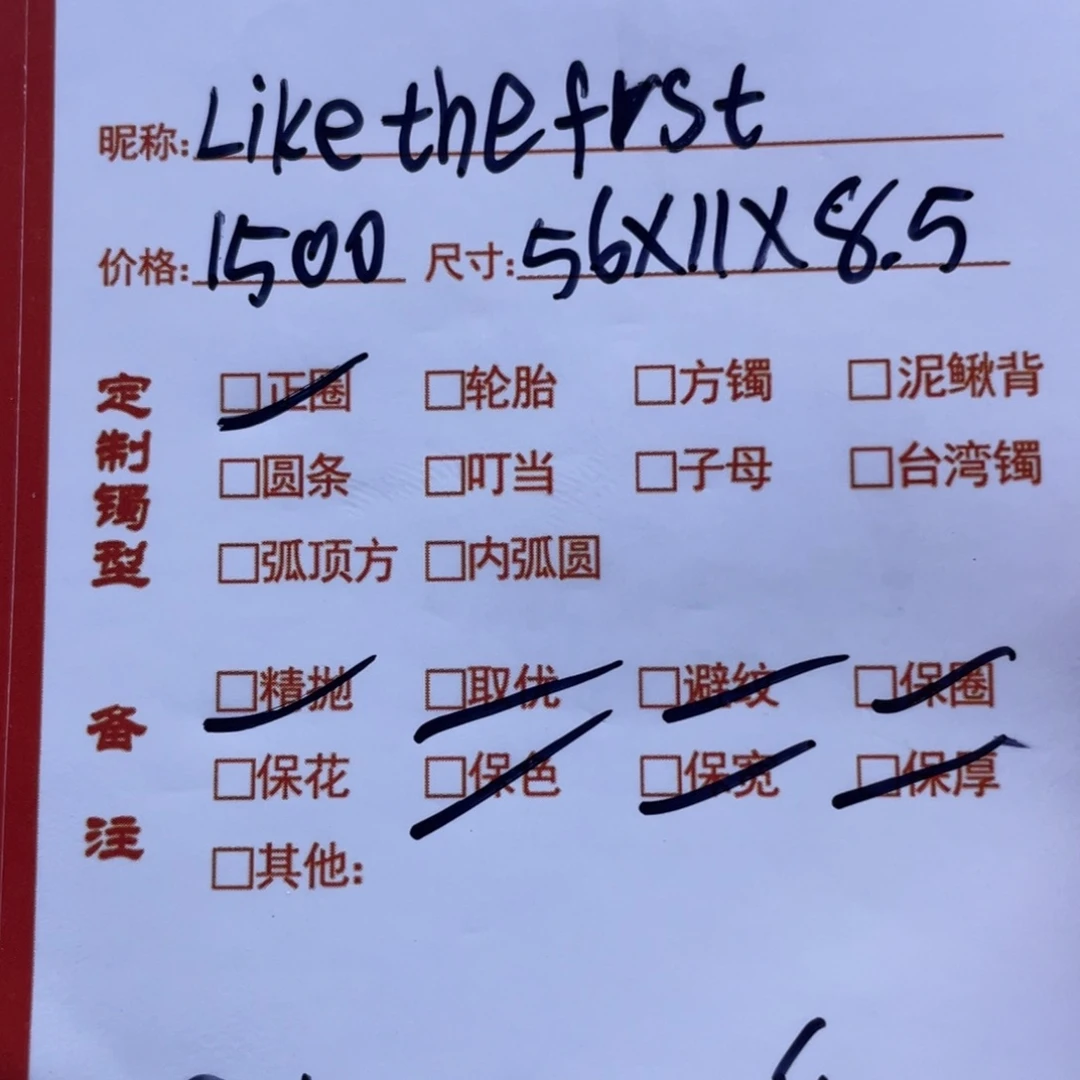 昵称:Like the frst
价格:1500 尺寸:56X11X8.5
定制镯型
□正圈 □轮胎 □方镯 □泥鳅背
□圆条 □叮当 □子母 □台湾镯
□弧顶方 □内弧圆
备注
□精抛 □取优 □避纹 □保圈
□保花 □保色 □保宽 □保厚
□其他: